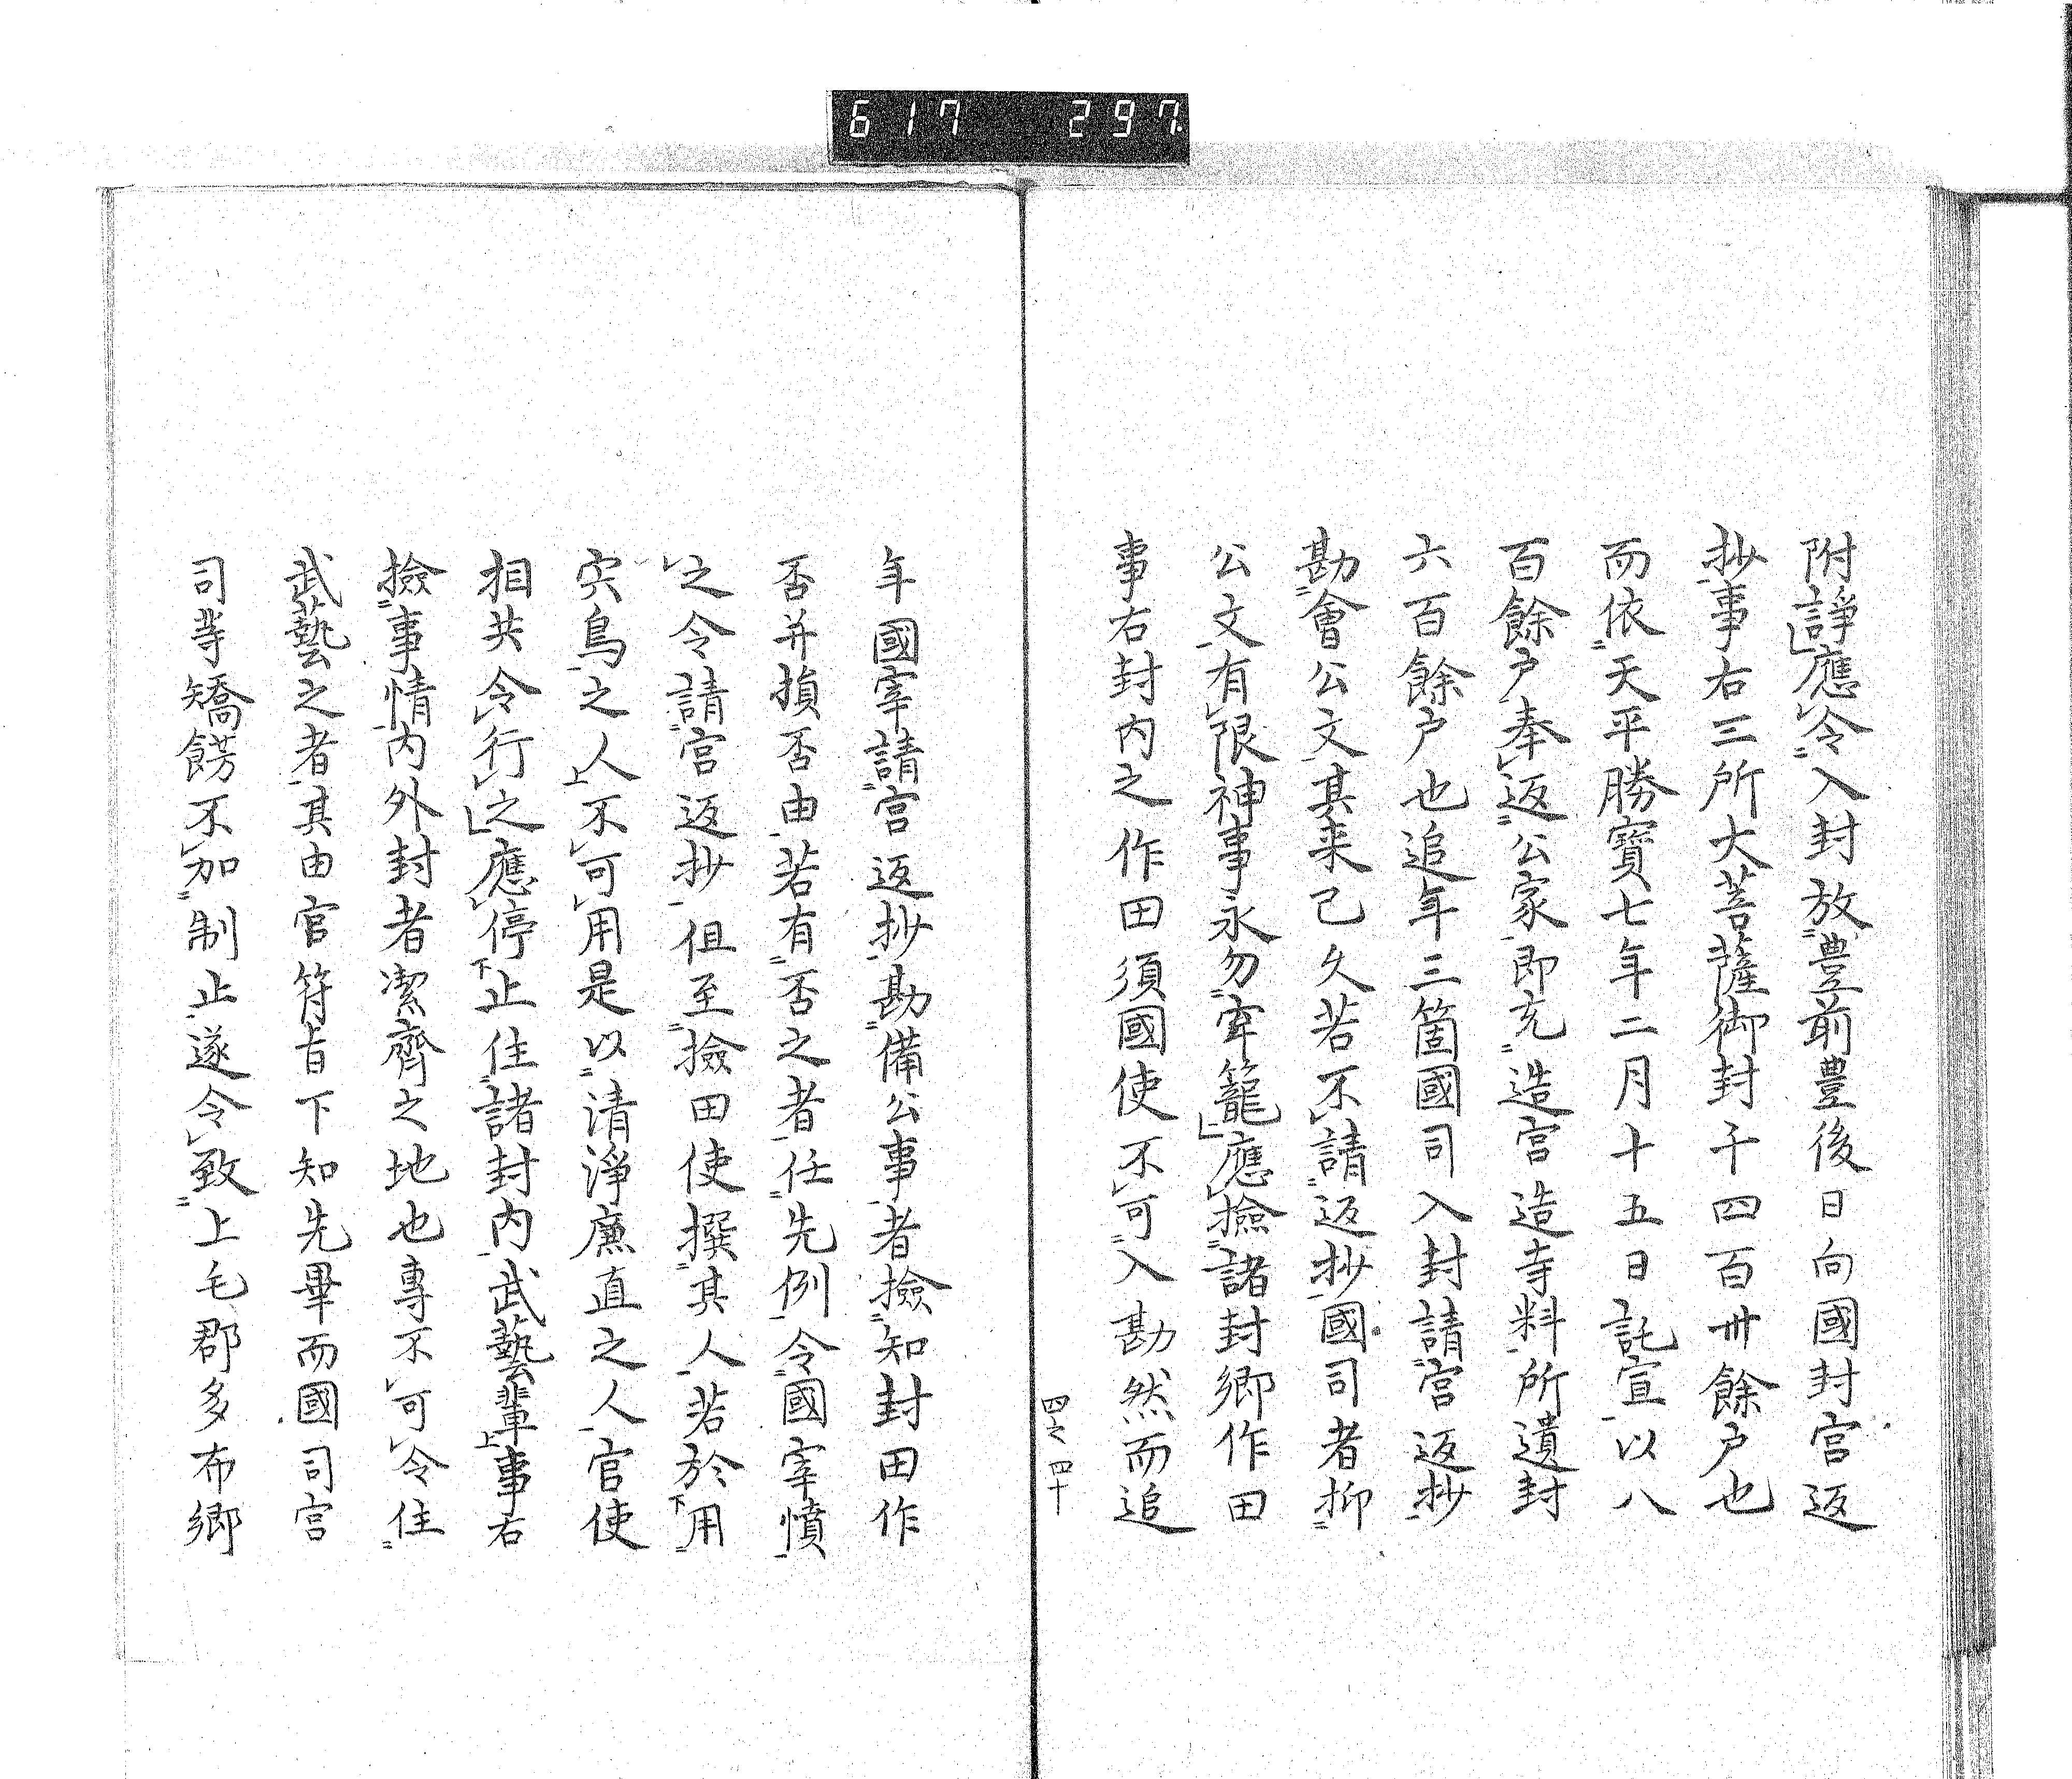 617 297
附諍應令入封放豊前豊後日向國封宮返
抄事右三所大菩薩御封千四百卅餘戸也
而依天平勝寳七年二月十五日託宣以八
百餘戸奉返公家即充造宮造寺料所遺封
六百餘戸也追年三箇國司入封請宮返抄
勘會公文其来已久若不請返抄國司者抑
公文有限神事永勿牢籠應撿諸封郷作田
事右封内之作田須國使不可入勘然而追
四之四十
年國宰請宮返抄勘備公事者撿知封田作
否并損否由若有否之者任先例令國宰憤
之令請宮返抄但至撿田使撰其人若於用
宍鳥之人不可用是以清淨廉直之人官使
相共令行之應停止住諸封内武藝輩事右
撿事情内外封者潔齊之地也專不可令住
武藝之者其由官符旨下知先畢而國司宮
司等矯餝不加制止遂令致上毛郡多布郷